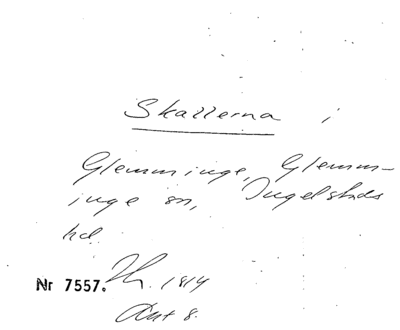 Skallerna i
Glemminge, Glemm-
inge sn, Ingelstads
hd.
Nr 7557. Th. 1814
Akt 8.